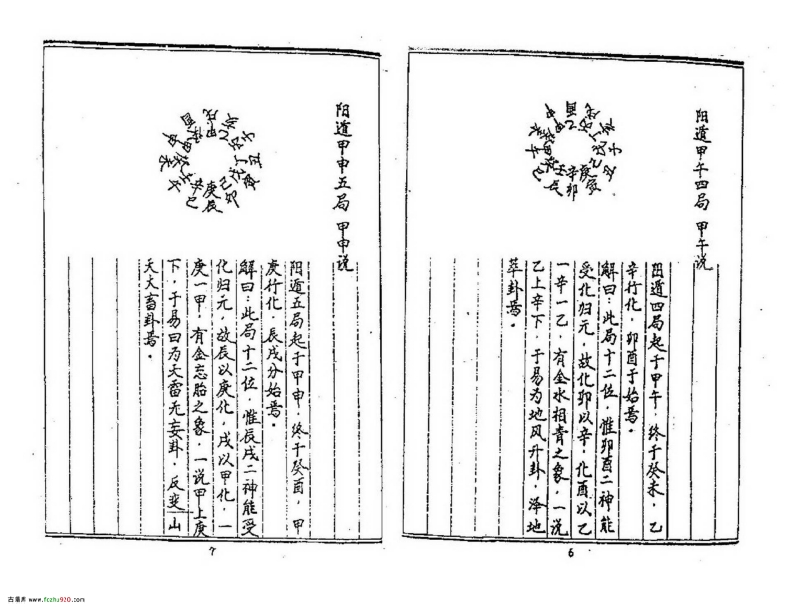 阳遁甲午四局 甲午说
阳遁四局起于甲午，终于癸未，乙
辛行化，卯酉于始焉。
解曰：此局十二位，惟卯酉二神能
受化归元，故化卯以辛，化酉以乙
一辛一乙，有金水相青之象，一说
乙上辛下，于易为地风升卦，泽地
萃卦焉。
6
阳遁甲申五局 甲申说
阳遁五局起于甲申，终于癸酉，甲
庚行化，辰戌分始焉。
解曰：此局十二位，惟辰戌二神能受
化归元，故辰以庚化，戌以甲化，一
庚一甲，有金忘胎之象，一说甲上庚
下，于易曰为天雷无妄卦，反变山
天大畜卦焉。
7
古易库 www.fczhu920.com